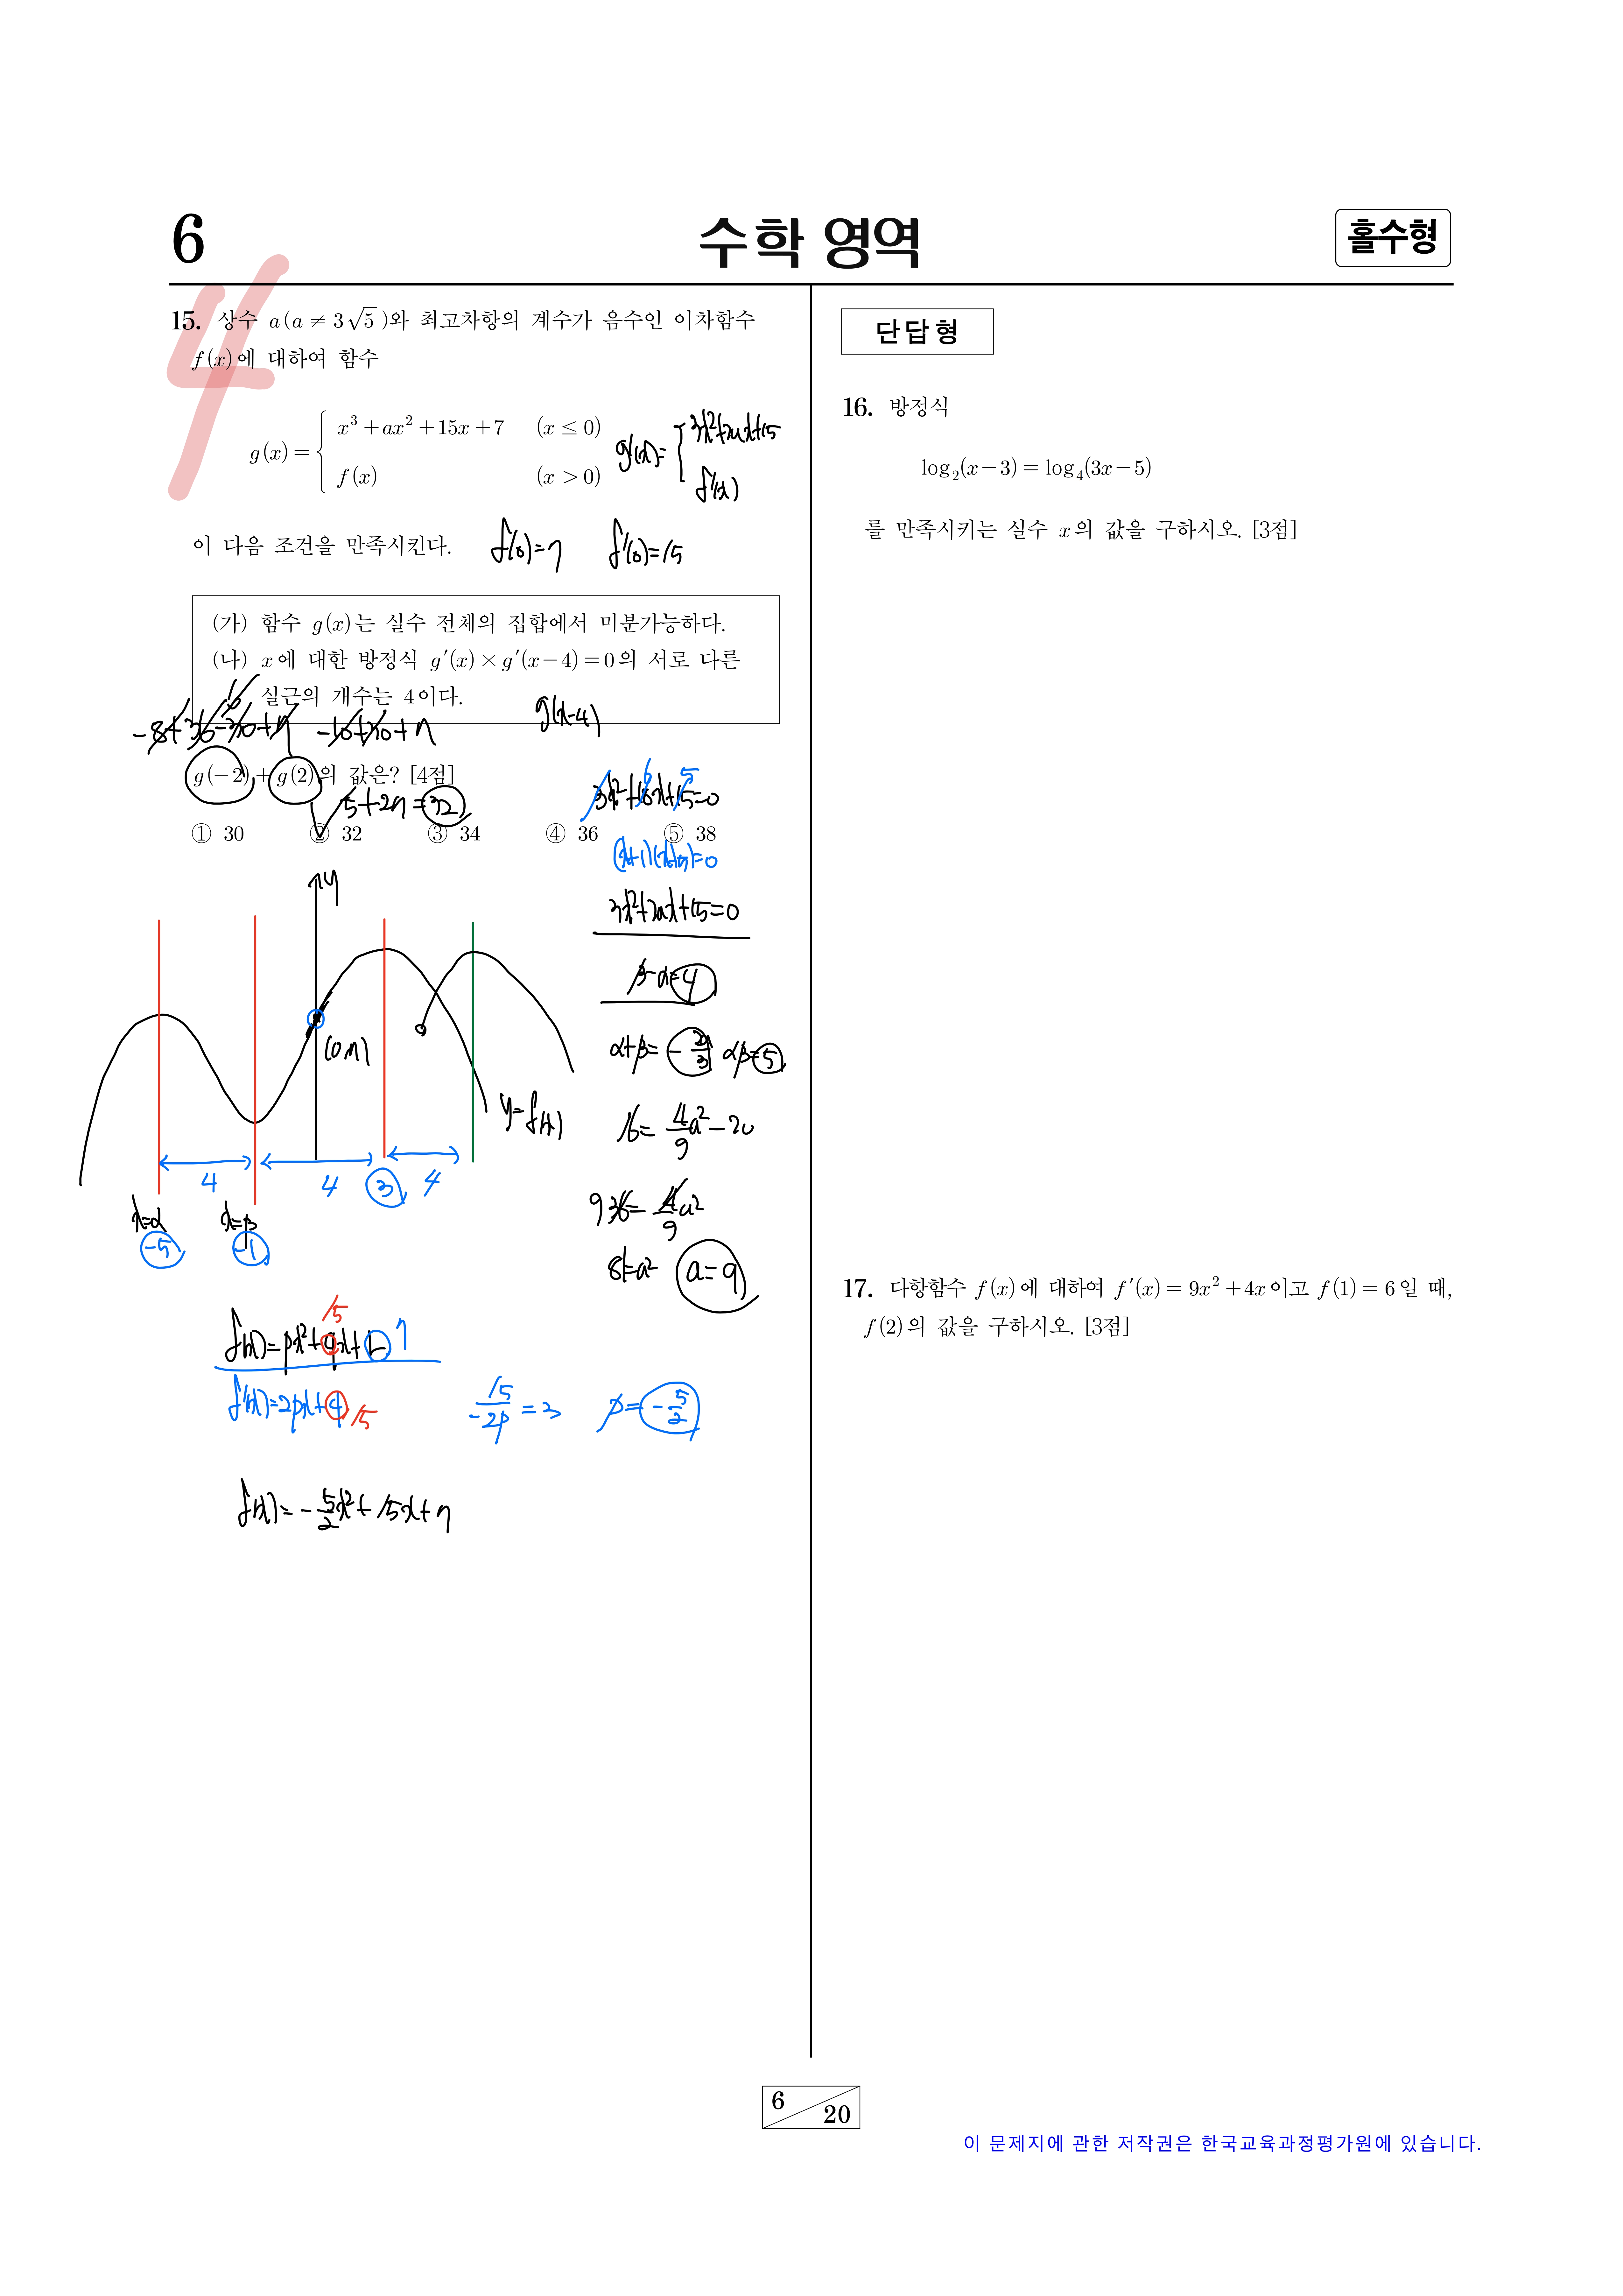 6
수학 영역
홀수형
4
15. 상수 a(a ≠ 3√5)와 최고차항의 계수가 음수인 이차함수
f(x)에 대하여 함수
g(x) = { x³+ax²+15x+7 (x ≤ 0)
f(x) (x > 0)
g'(x)= { 3x²+2ax+15
f'(x)
이 다음 조건을 만족시킨다.
f(0)=7 f'(0)=15
(가) 함수 g(x)는 실수 전체의 집합에서 미분가능하다.
(나) x에 대한 방정식 g′(x)×g′(x−4)=0의 서로 다른
실근의 개수는 4이다.
g(x-4)
6
-8+36-30+7 -10+30+7
g(−2)+g(2)의 값은? [4점]
5+27=32
① 30 ② 32 ③ 34 ④ 36 ⑤ 38
6 5
3x²+18x+15=0
(x+1)(x+5)=0
3x²+2ax+15=0
β-α=4
α+β= -2a/3 αβ=5
16= 4/9 a²-20
9 36= 4/9 a²
81=a² a=9
y
(0,7)
y=f(x)
4 4 3 4
x=α x=β
-5 -1
15
f(x)=px²+qx+r 7
f'(x)=2px+q 15
15/-2p = 3 p= -5/2
f(x)= -5/2 x²+15x+7
단답형
16. 방정식
log₂(x−3) = log₄(3x−5)
를 만족시키는 실수 x의 값을 구하시오. [3점]
17. 다항함수 f(x)에 대하여 f′(x) = 9x²+4x이고 f(1) = 6일 때,
f(2)의 값을 구하시오. [3점]
6
20
이 문제지에 관한 저작권은 한국교육과정평가원에 있습니다.